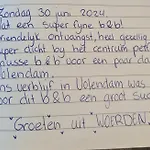 Zondag 30 juni 2024.
at een super fyne b&b!
riendelyk ontvangst, heel gezellig
uper dicht by het centrum
nusse b&b voor een paar da
Volendam.
ns verblyf in Volendam was
oor dit b&b een groot suc
"Groeten uit WOERDEN."